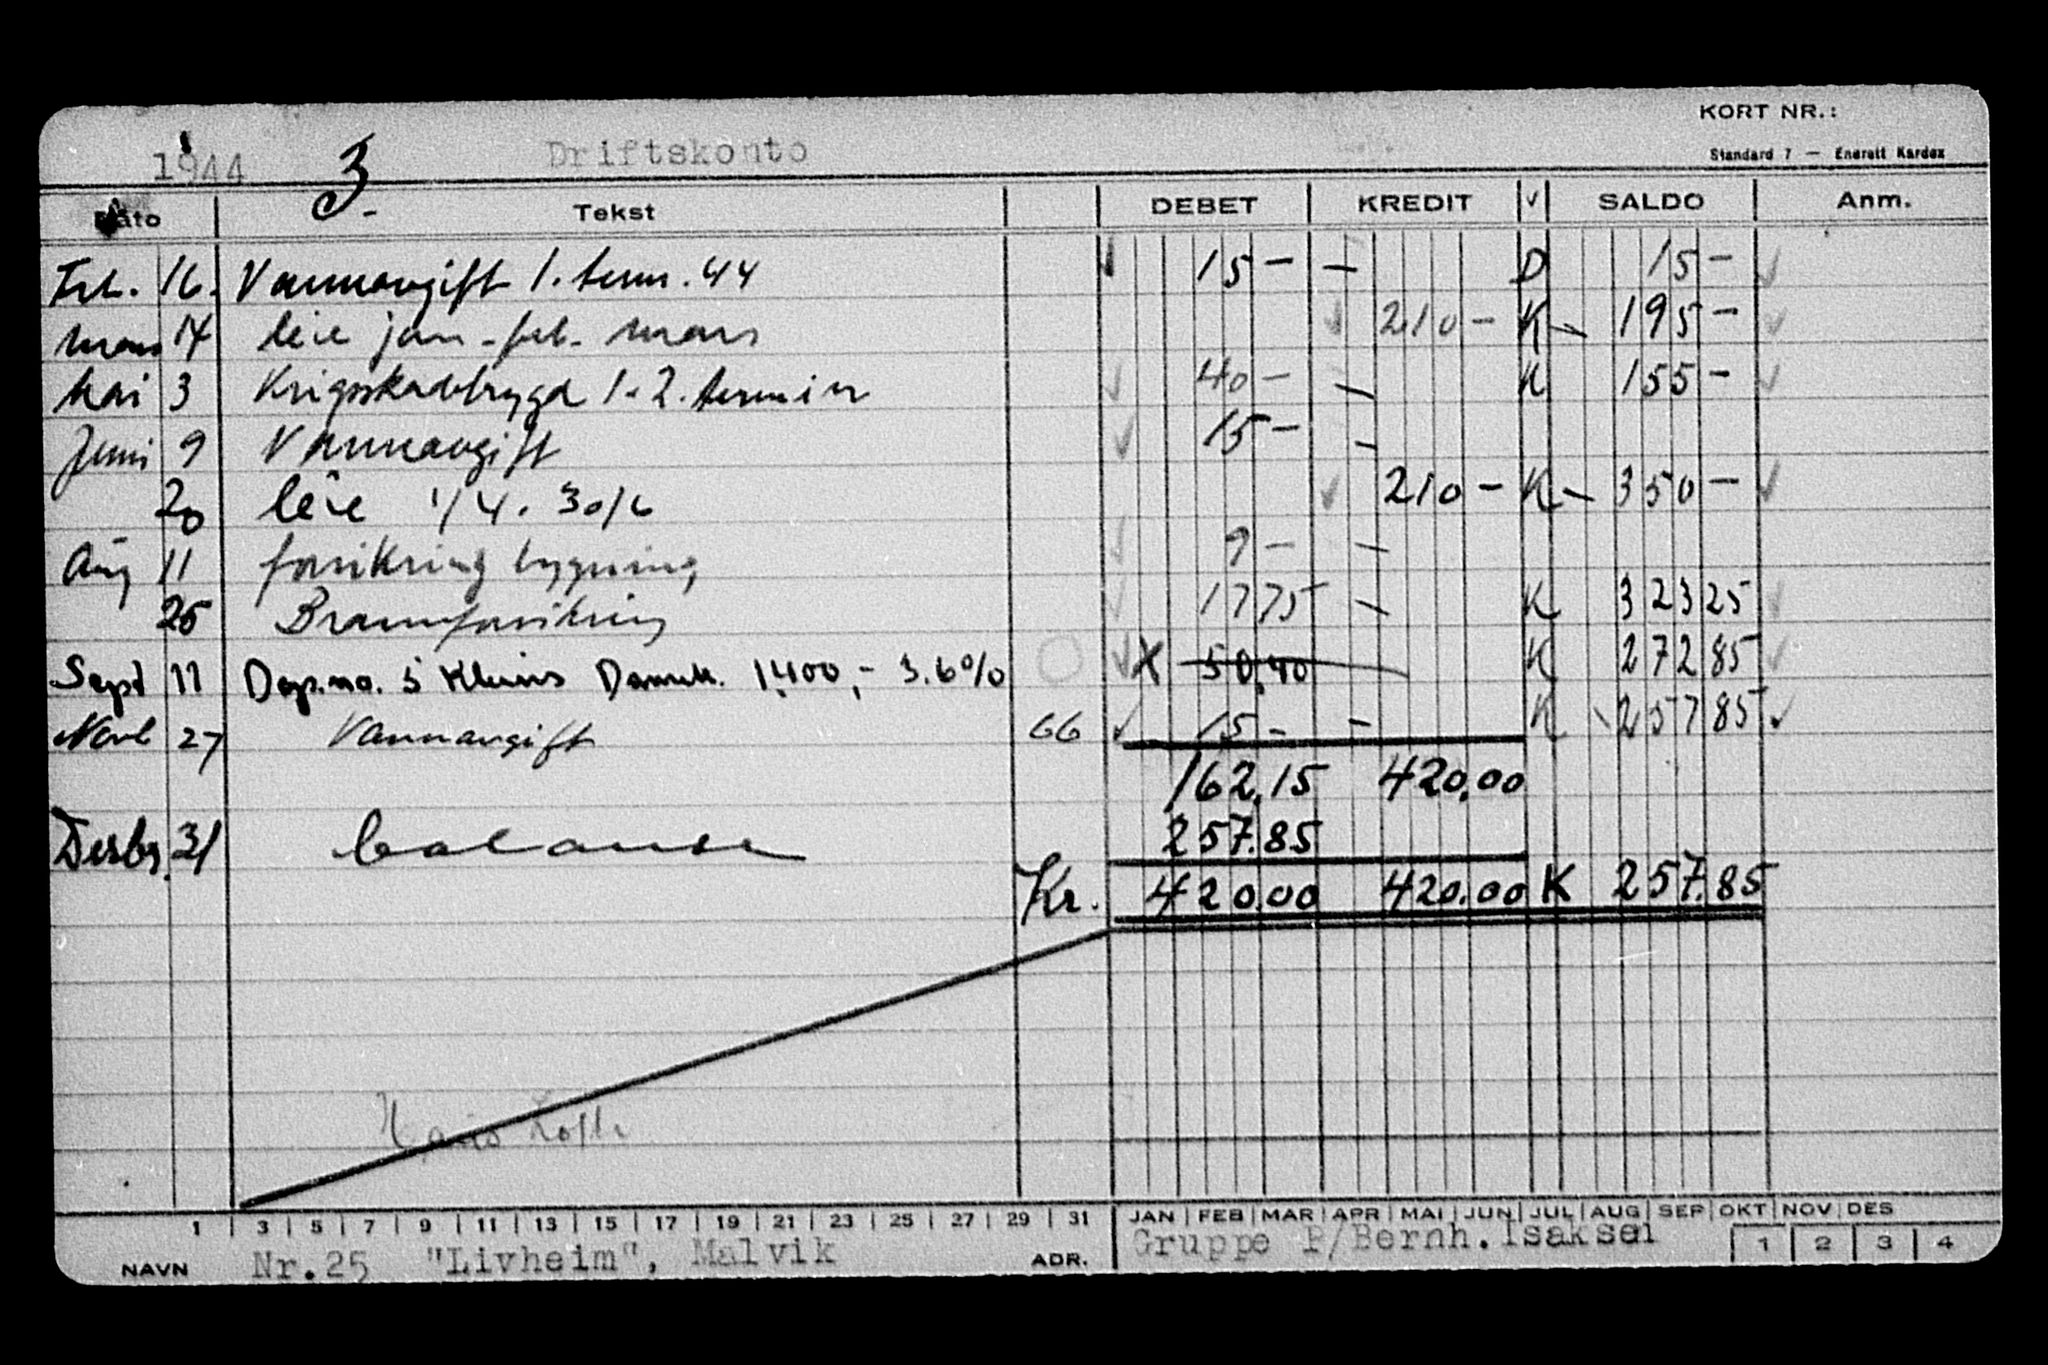 KORT NR.:
Standard 7 — Enerett Kardex
1944 3 Driftskonto
Dato Tekst DEBET KREDIT √ SALDO Anm.
Feb. 16. Vannavgift 1. term. 44 15 - D 15 -
mars 14 leie jan - feb. mars 210 - K 195 -
Mai 3 Krigsskadetrygd 1. 2. termin 40 - K 155 -
Juni 9 Vannavgift 15 -
20 leie 1/4. 30/6 210 - K 350 -
Aug 11 forsikring bygning 9 -
25 Brannforsikring 17 75 K 323 25
Sept 11 1400,- 3.6% X 50,40 K 272 85
Novb 27 Vannavgift 66 15 - K 257 85
162,15 420,00
Desbr. 31 balanse 257.85
Kr. 420.00 420.00 K 257.85
1 3 5 7 9 11 13 15 17 19 21 23 25 27 29 31 JAN FEB MAR APR MAI JUN JUL AUG SEP OKT NOV DES
NAVN Nr.25 "Livheim", Malvik ADR. Gruppe P/Bernh.Isaksen 1 2 3 4